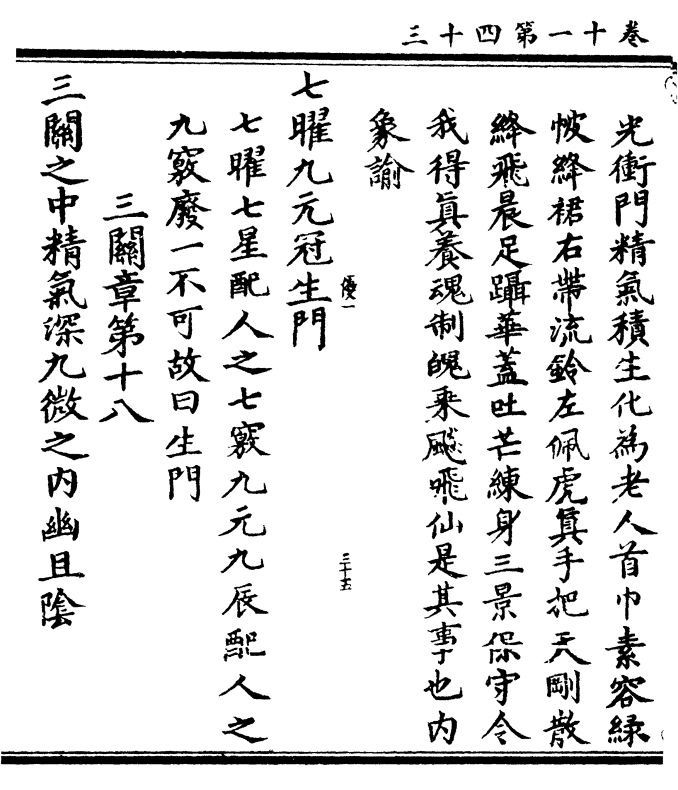 卷十一第四十三
光衝門精氣積生化為老人首巾素容綠
帔絳裙右帶流鈴左佩虎眞手把天剛散
絳飛晨足躡華蓋吐芒練身三景保守令
我得眞養魂制魄乘飈飛仙是其事也内
象諭
優一
三十五
七曜九元冠生門
七曜七星配人之七竅九元九辰配人之
九竅廢一不可故曰生門
三關章第十八
三關之中精氣深九微之内幽且陰